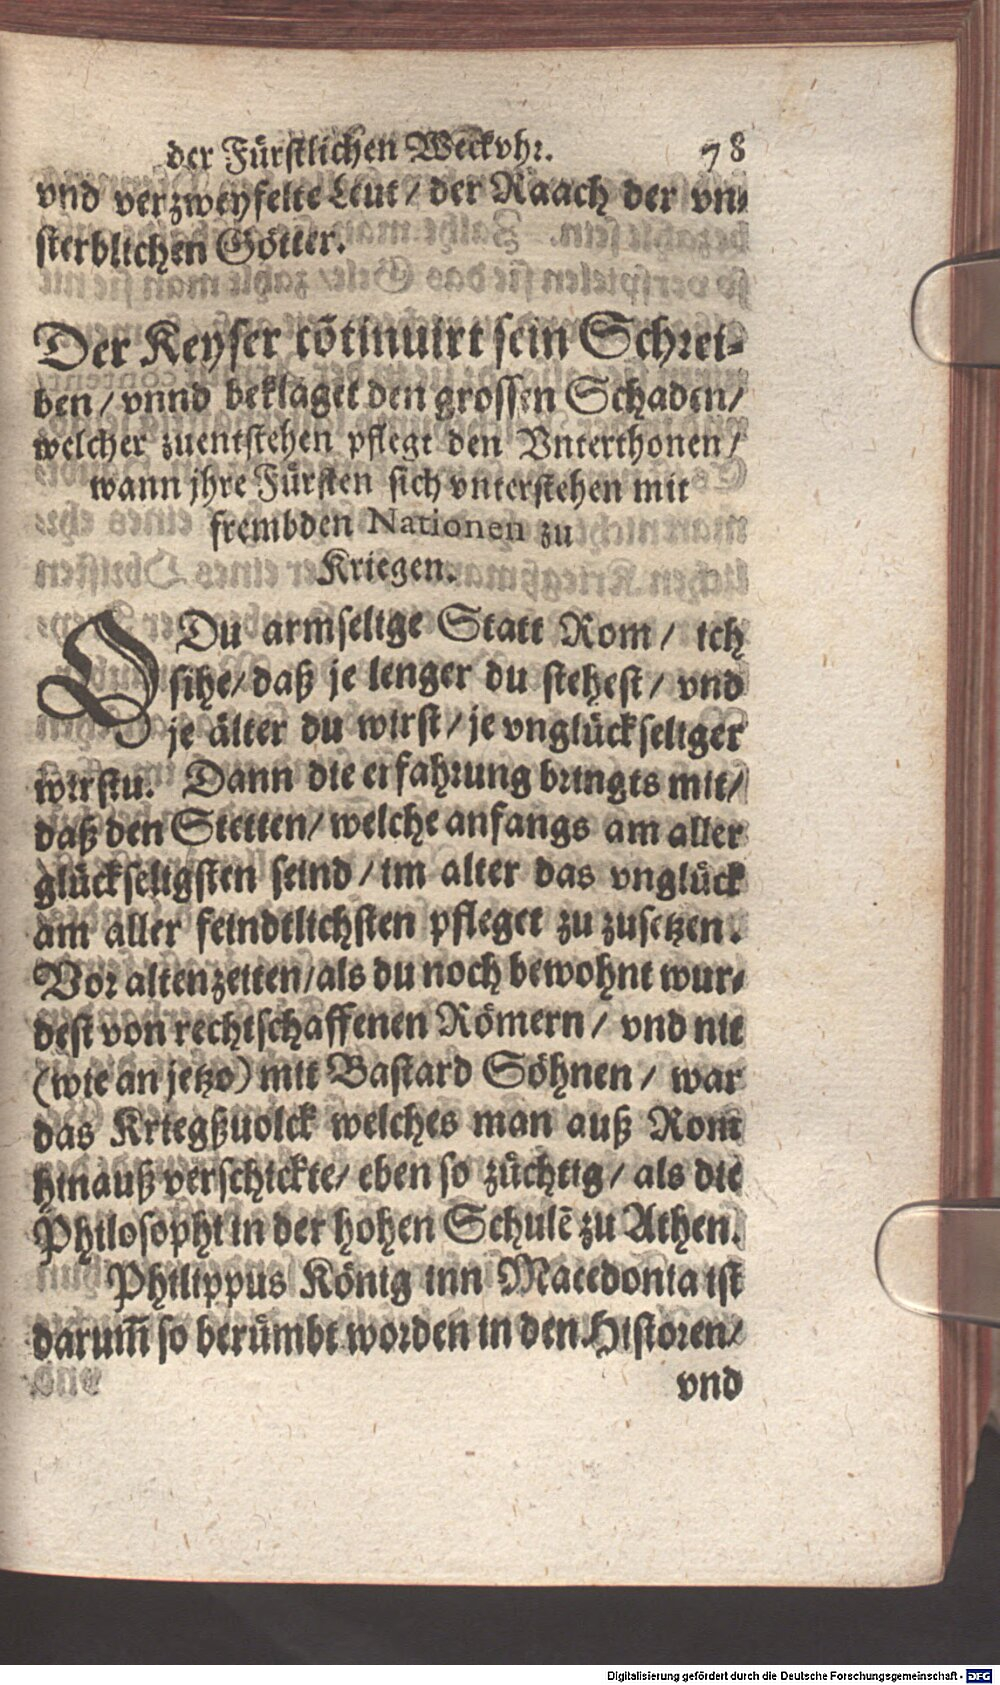 der Fürstlichen Weckvhr. 78
vnd verzweyfelte Leut / der Raach der vn⸗
sterblichen Götter.
Der Keyser cõtinuirt sein Schrei⸗
ben / vnnd beklaget den grossen Schaden /
welcher zuentstehen pflegt den Vnterthonen /
wann jhre Fürsten sich vnterstehen mit
frembden Nationen zu
Kriegen.
O Du armselige Statt Rom / ich
sihe / daß je lenger du stehest / vnd
je älter du wirst / je vnglückseliger
wirstu. Dann die erfahrung bringts mit /
daß den Stetten / welche anfangs am aller
glückseligsten seind / im alter das vnglück
am aller feindtlichsten pfleget zu zusetzen.
Vor altenzeiten / als du noch bewohnt wur⸗
dest von rechtschaffenen Römern / vnd nit
(wie an jetzo) mit Bastard Söhnen / war
das Kriegßuolck welches man auß Rom
hinauß verschickte / eben so züchtig / als die
Philosophi in der hohen Schulẽ zu Athen.
Philippus König inn Macedonia ist
darum̃ so berümbt worden in den Historen /
vnd
Digitalisierung gefördert durch die Deutsche Forschungsgemeinschaft - DFG